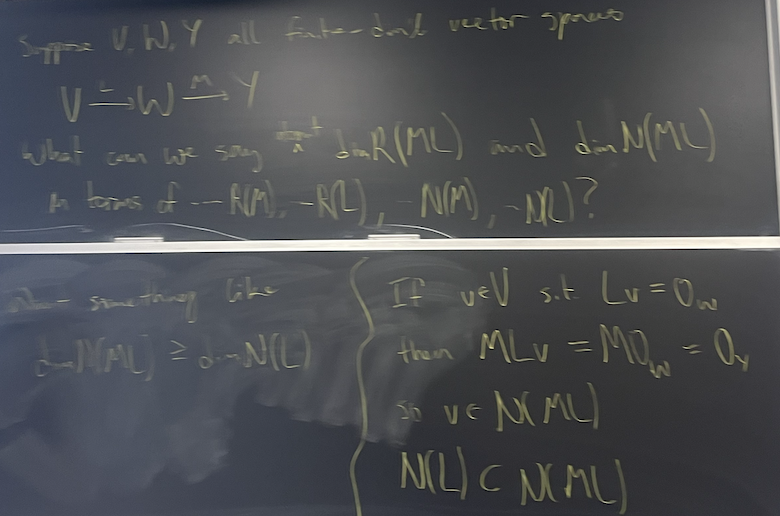 Suppose V, W, Y all finite-dim'l vector spaces
V —L→ W —M→ Y
What can we say about dim R(ML) and dim N(ML)
in terms of -- R(M), -R(L), -N(M), -N(L)?
something like
dim N(ML) ≥ dim N(L)
If v∈V s.t. Lv = 0_W
then MLv = M0_W = 0_Y
so v ∈ N(ML)
N(L) ⊂ N(ML)